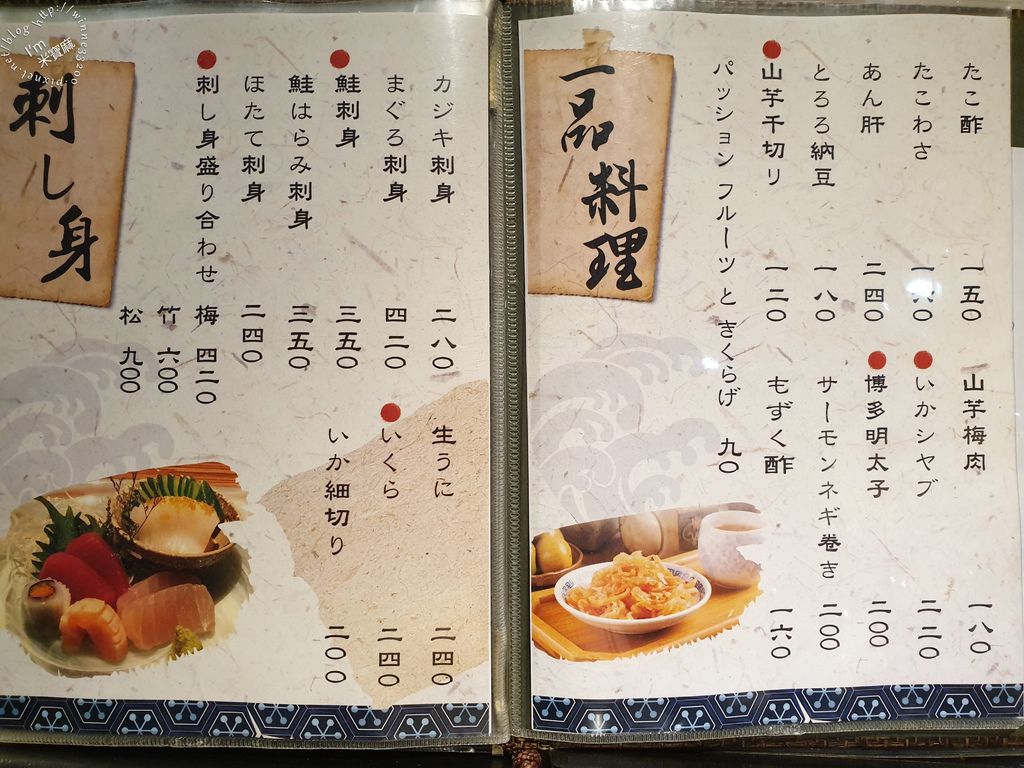 一品料理
たこ酢 一五〇
たこわさ 一八〇
あん肝 二四〇
とろろ納豆 一八〇
山芋千切り 一二〇
パッション フルーツ と きくらげ 九〇
山芋梅肉 一八〇
いかシャブ 二二〇
博多明太子 二〇〇
サーモンネギ巻き 二〇〇
もずく酢 一六〇
刺し身
カジキ刺身 二八〇
まぐろ刺身 四二〇
鮭刺身 三五〇
鮭はらみ刺身 三五〇
ほたて刺身 二四〇
刺し身盛り合わせ 梅 四二〇
竹 六〇〇
松 九〇〇
生うに 二四〇
いくら 二四〇
いか細切り 二〇〇
I'm 米寶麻